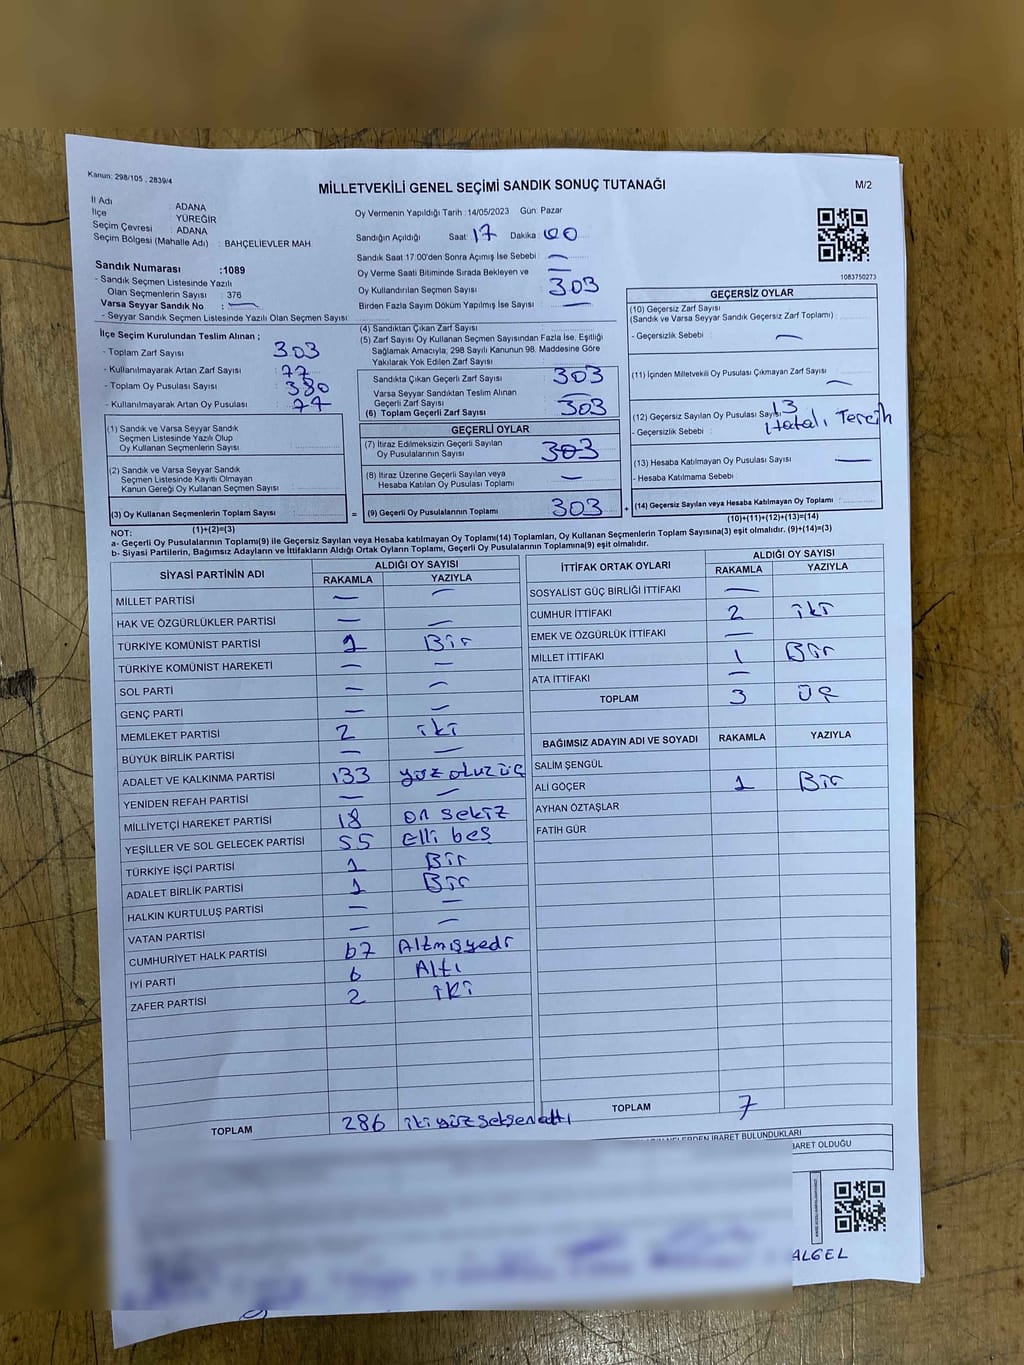 Kanun: 298/105 , 2839/4
MİLLETVEKİLİ GENEL SEÇİMİ SANDIK SONUÇ TUTANAĞI
M/2
İl Adı : ADANA
İlçe : YÜREĞİR
Seçim Çevresi : ADANA
Seçim Bölgesi (Mahalle Adı) : BAHÇELİEVLER MAH
Oy Vermenin Yapıldığı Tarih : 14/05/2023 Gün: Pazar
Sandığın Açıldığı Saat: 17 Dakika: 00
Sandık Saat 17:00'den Sonra Açımış İse Sebebi : —
Oy Verme Saati Bitiminde Sırada Bekleyen ve
Oy Kullandırılan Seçmen Sayısı : 303
Birden Fazla Sayım Döküm Yapılmış İse Sayısı : —
1083750273
Sandık Numarası :1089
- Sandık Seçmen Listesinde Yazılı
Olan Seçmenlerin Sayısı : 376
Varsa Seyyar Sandık No : —
- Seyyar Sandık Seçmen Listesinde Yazılı Olan Seçmen Sayısı:
İlçe Seçim Kurulundan Teslim Alınan ;
- Toplam Zarf Sayısı : 303
- Kullanılmayarak Artan Zarf Sayısı : 77
- Toplam Oy Pusulası Sayısı : 380
- Kullanılmayarak Artan Oy Pusulası : 77
(1) Sandık ve Varsa Seyyar Sandık
Seçmen Listesinde Yazılı Olup
Oy Kullanan Seçmenlerin Sayısı :
(2) Sandık ve Varsa Seyyar Sandık
Seçmen Listesinde Kayıtlı Olmayan
Kanun Gereği Oy Kullanan Seçmen Sayısı :
(3) Oy Kullanan Seçmenlerin Toplam Sayısı :
(1)+(2)=(3)
=
(4) Sandıktan Çıkan Zarf Sayısı :
(5) Zarf Sayısı Oy Kullanan Seçmen Sayısından Fazla İse, Eşitliği
Sağlamak Amacıyla, 298 Sayılı Kanunun 98. Maddesine Göre
Yakılarak Yok Edilen Zarf Sayısı :
Sandıkta Çıkan Geçerli Zarf Sayısı : 303
Varsa Seyyar Sandıktan Teslim Alınan
Geçerli Zarf Sayısı : —
(6) Toplam Geçerli Zarf Sayısı : 303
GEÇERLİ OYLAR
(7) İtiraz Edilmeksizin Geçerli Sayılan
Oy Pusulalarının Sayısı : 303
(8) İtiraz Üzerine Geçerli Sayılan veya
Hesaba Katılan Oy Pusulası Toplamı : —
(9) Geçerli Oy Pusulalarının Toplamı : 303
+
GEÇERSİZ OYLAR
(10) Geçersiz Zarf Sayısı
(Sandık ve Varsa Seyyar Sandık Geçersiz Zarf Toplamı) :
- Geçersizlik Sebebi : —
(11) İçinden Milletvekili Oy Pusulası Çıkmayan Zarf Sayısı : —
(12) Geçersiz Sayılan Oy Pusulası Sayısı 13
- Geçersizlik Sebebi : Hatalı Tercih
(13) Hesaba Katılmayan Oy Pusulası Sayısı : —
- Hesaba Katılmama Sebebi :
(14) Geçersiz Sayılan veya Hesaba Katılmayan Oy Toplamı :
(10)+(11)+(12)+(13)=(14)
NOT:
a- Geçerli Oy Pusulalarının Toplamı(9) ile Geçersiz Sayılan veya Hesaba katılmayan Oy Toplamı(14) Toplamları, Oy Kullanan Seçmenlerin Toplam Sayısına(3) eşit olmalıdır. (9)+(14)=(3)
b- Siyasi Partilerin, Bağımsız Adayların ve İttifakların Aldığı Ortak Oyların Toplamı, Geçerli Oy Pusulalarının Toplamına(9) eşit olmalıdır.
SİYASİ PARTİNİN ADI ALDIĞI OY SAYISI
RAKAMLA YAZIYLA
MİLLET PARTİSİ — —
HAK VE ÖZGÜRLÜKLER PARTİSİ — —
TÜRKİYE KOMÜNİST PARTİSİ 1 Bir
TÜRKİYE KOMÜNİST HAREKETİ — —
SOL PARTİ — —
GENÇ PARTİ — —
MEMLEKET PARTİSİ 2 iki
BÜYÜK BİRLİK PARTİSİ — —
ADALET VE KALKINMA PARTİSİ 133 yüz otuz üç
YENİDEN REFAH PARTİSİ — —
MİLLİYETÇİ HAREKET PARTİSİ 18 on sekiz
YEŞİLLER VE SOL GELECEK PARTİSİ 55 Elli beş
TÜRKİYE İŞÇİ PARTİSİ 1 Bir
ADALET BİRLİK PARTİSİ 1 Bir
HALKIN KURTULUŞ PARTİSİ — —
VATAN PARTİSİ — —
CUMHURİYET HALK PARTİSİ 67 Altmışyedi
İYİ PARTİ 6 Altı
ZAFER PARTİSİ 2 iki
TOPLAM 286 iki yüz seksen altı
İTTİFAK ORTAK OYLARI ALDIĞI OY SAYISI
RAKAMLA YAZIYLA
SOSYALİST GÜÇ BİRLİĞİ İTTİFAKI —
CUMHUR İTTİFAKI 2 iki
EMEK VE ÖZGÜRLÜK İTTİFAKI —
MİLLET İTTİFAKI 1 Bir
ATA İTTİFAKI —
TOPLAM 3 üç
BAĞIMSIZ ADAYIN ADI VE SOYADI RAKAMLA YAZIYLA
SALİM ŞENGÜL
ALİ GÖÇER 1 Bir
AYHAN ÖZTAŞLAR
FATİH GÜR
TOPLAM 7
NELERDEN İBARET BULUNDUKLARI
İBARET OLDUĞU